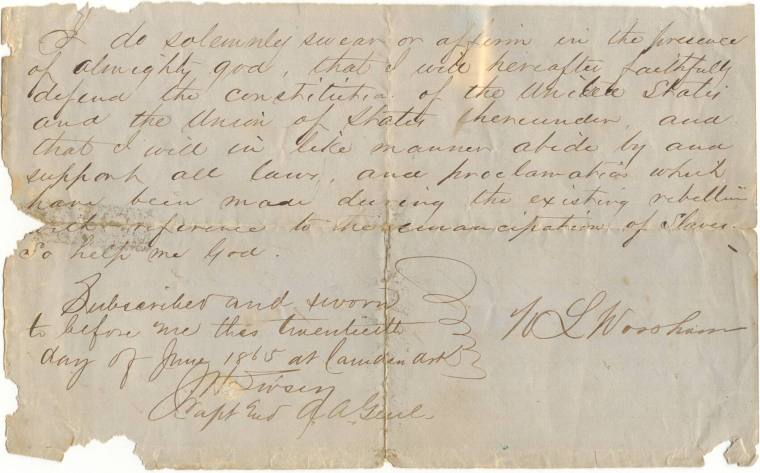 I do solemnly swear or affirm in the presence
of almighty god, that I will hereafter faithfully
defend the constitution of the United States
and the Union of States thereunder, and
that I will in like manner abide by and
support all laws, and proclamations which
have been made during the existing rebellion
with reference to the emancipation of Slaves.
So help me God.
Subscribed and sworn
to before me this twentieth
day of June 1865 at Camden Ark
W L Worsham
Capt A. A. Genl.